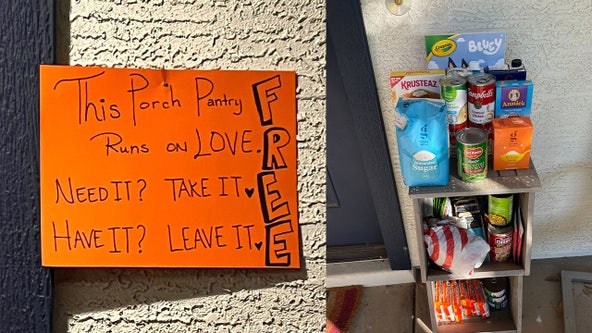 This Porch Pantry
Runs on LOVE.
NEED IT? TAKE IT ♥
HAVE IT? LEAVE IT ♥
FREE
Crayola
BLUEY
KRUSTEAZ
Campbell's
ANNIE'S
g
Sugar
g